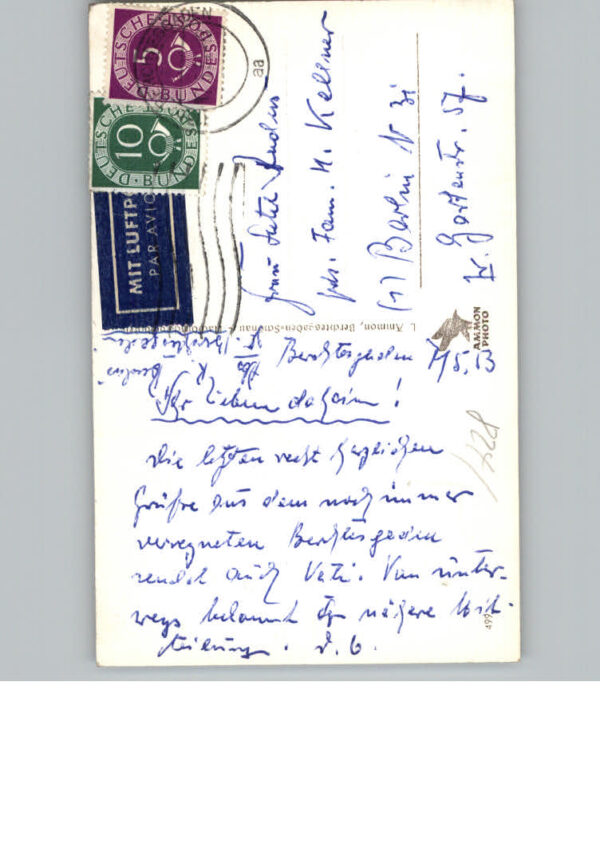 DEUTSCHE BUNDESPOST
5
DEUTSCHE BUNDESPOST
10
aa
MIT LUFTP
PAR AVIO
Frau
Fam. H. Kellner
(1) Berlin N 31
Gartenstr. 57.
L. Ammon, Berchtesgaden-Schönau
AMMON
PHOTO
Berchtesgaden 5.53
Berlin
Ihr Lieben daheim!
Die letzten recht herzlichen
Grüße aus dem noch immer
verregneten Berchtesgaden
sendet Euch Vati. Von unter-
wegs bekommt Ihr nähere Mit-
teilung.
499